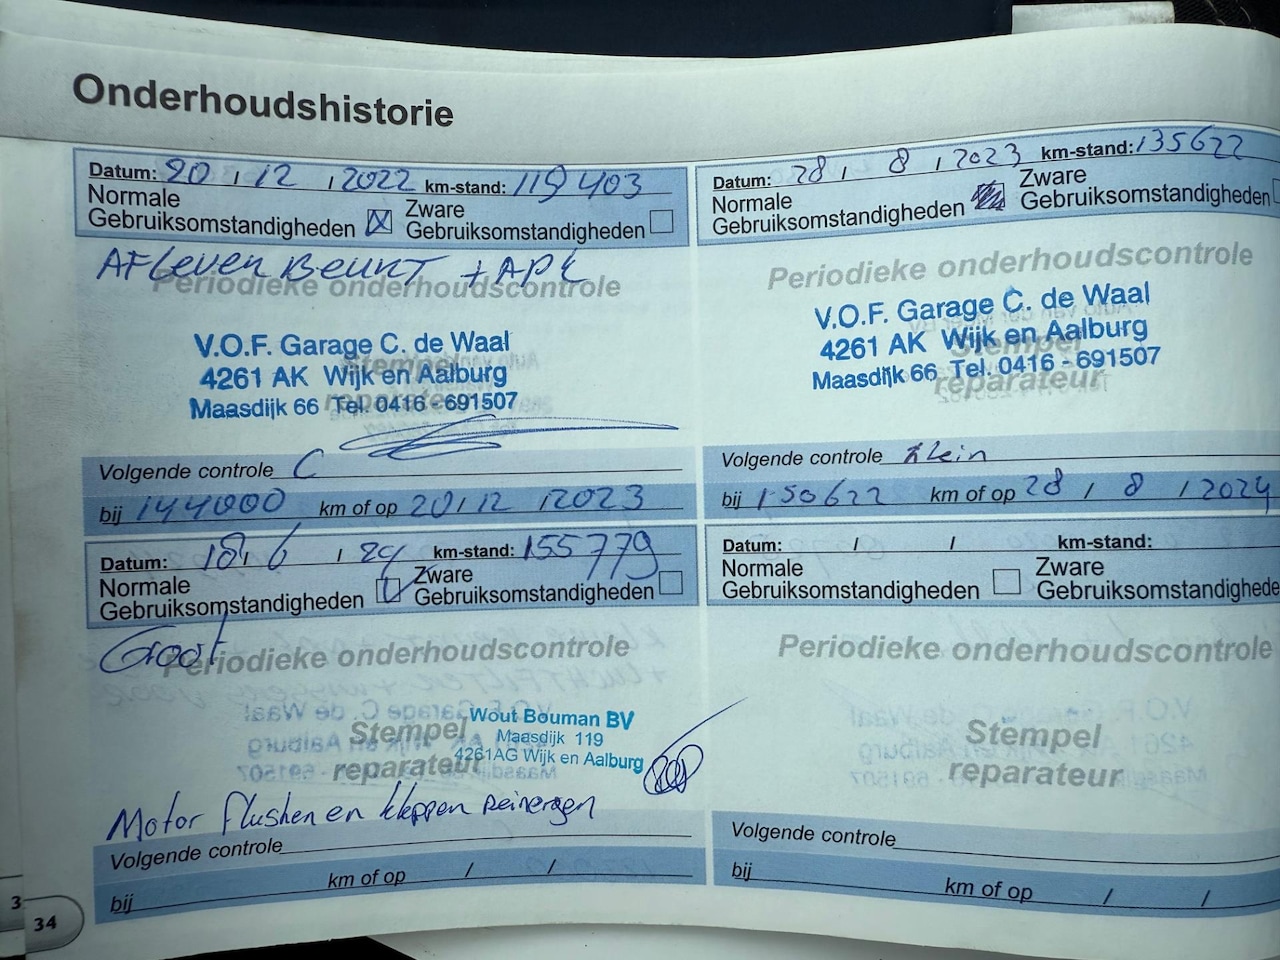 Onderhoudshistorie
Datum: 20 / 12 / 2022 km-stand: 119 403
Normale Gebruiksomstandigheden ☒ Zware Gebruiksomstandigheden ☐
AFLeVeN BEURT + APK
Periodieke onderhoudscontrole
Stempel reparateur
V.O.F. Garage C. de Waal
4261 AK Wijk en Aalburg
Maasdijk 66 Tel. 0416 - 691507
Volgende controle C
bij 144000 km of op 20/12 /2023
Datum: 28 / 8 / 2023 km-stand: 135622
Normale Gebruiksomstandigheden Zware Gebruiksomstandigheden
Periodieke onderhoudscontrole
Stempel reparateur
V.O.F. Garage C. de Waal
4261 AK Wijk en Aalburg
Maasdijk 66 Tel. 0416 - 691507
Volgende controle klein
bij 150622 km of op 28 / 8 / 2024
Datum: 18 / 6 / 24 km-stand: 155779
Normale Gebruiksomstandigheden Zware Gebruiksomstandigheden ☐
Groot
Periodieke onderhoudscontrole
Stempel reparateur
Wout Bouman BV
Maasdijk 119
4261AG Wijk en Aalburg
Motor flushen en kleppen reinegen
Volgende controle
bij km of op / /
Datum: / / km-stand:
Normale Gebruiksomstandigheden ☐ Zware Gebruiksomstandighede
Periodieke onderhoudscontrole
Stempel
reparateur
Volgende controle
bij km of op / /
3
34